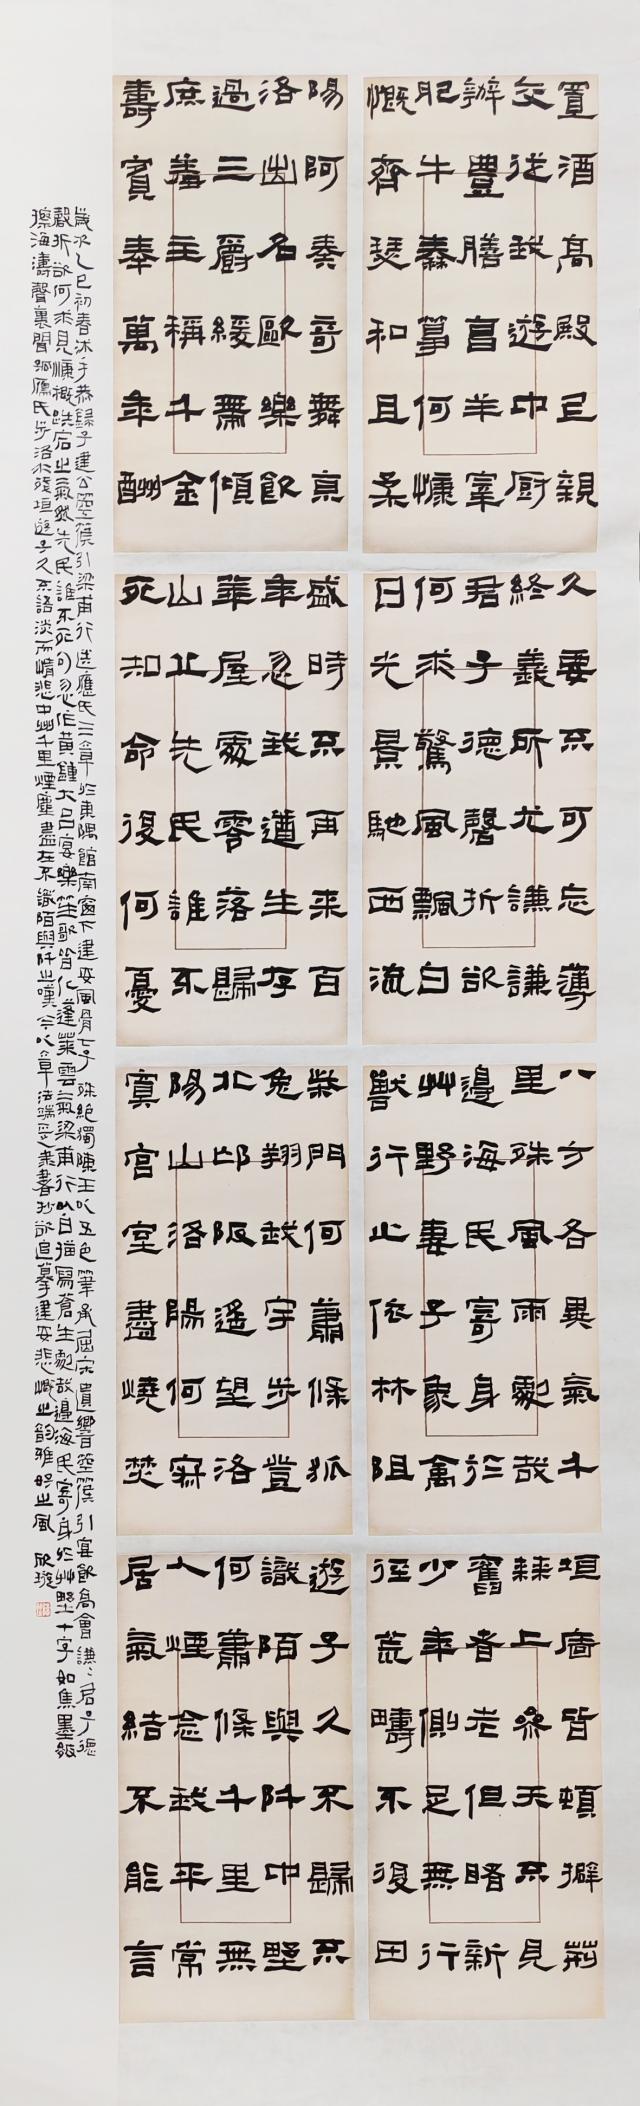 置酒高殿上親
交從我遊中厨
辦豐膳烹羊宰
肥牛秦箏何慷
慨齊瑟和且柔
陽阿奏奇舞京
洛出名歐樂飲
過三爵緩帶傾
庶羞主稱千金
壽賓奉萬年酬
久要不可忘薄
終義所尤謙謙
君子德磬折欲
何求驚風飄白
日光景馳西流
盛時不再來百
年忽我遒生存
華屋處零落歸
山丘先民誰不
死知命復何憂
八方各異氣千
里殊風雨劇哉
邊海民寄身於
艸野妻子象禽
獸行止依林阻
柴門何蕭條狐
兔翔我宇步登
北邙阪遙望洛
陽山洛陽何寂
寞宮室盡燒焚
垣牆皆頓擗荊
棘上參天不見
舊耆老但睹新
少年側足無行
徑荒疇不復田
遊子久不歸不
識陌與阡中野
何蕭條千里無
人煙念我平常
居氣結不能言
歲次乙巳初春沐手恭錄子建公箜篌引梁甫行送應氏三章於東隅館南窗下建安風骨七子殊絕獨陳王以五色筆承屈宋遺響箜篌引宴飲高會謙謙君子德
磬折欲何求見慷慨跌宕之氣然先民誰不死句忽作黃鐘大呂宴樂笙歌皆化蓬萊雲氣梁甫行以白描寫蒼生劇哉邊海民寄身於艸野十字如焦墨皴
擦海濤聲裏聞應氏步洛水殘垣遊子久不語淡而情悲中艸千里煙塵盡在不識陌與阡之嘆今以章法端妥隸書抄欲追摹建安悲慨之韻雅之風 欣璇